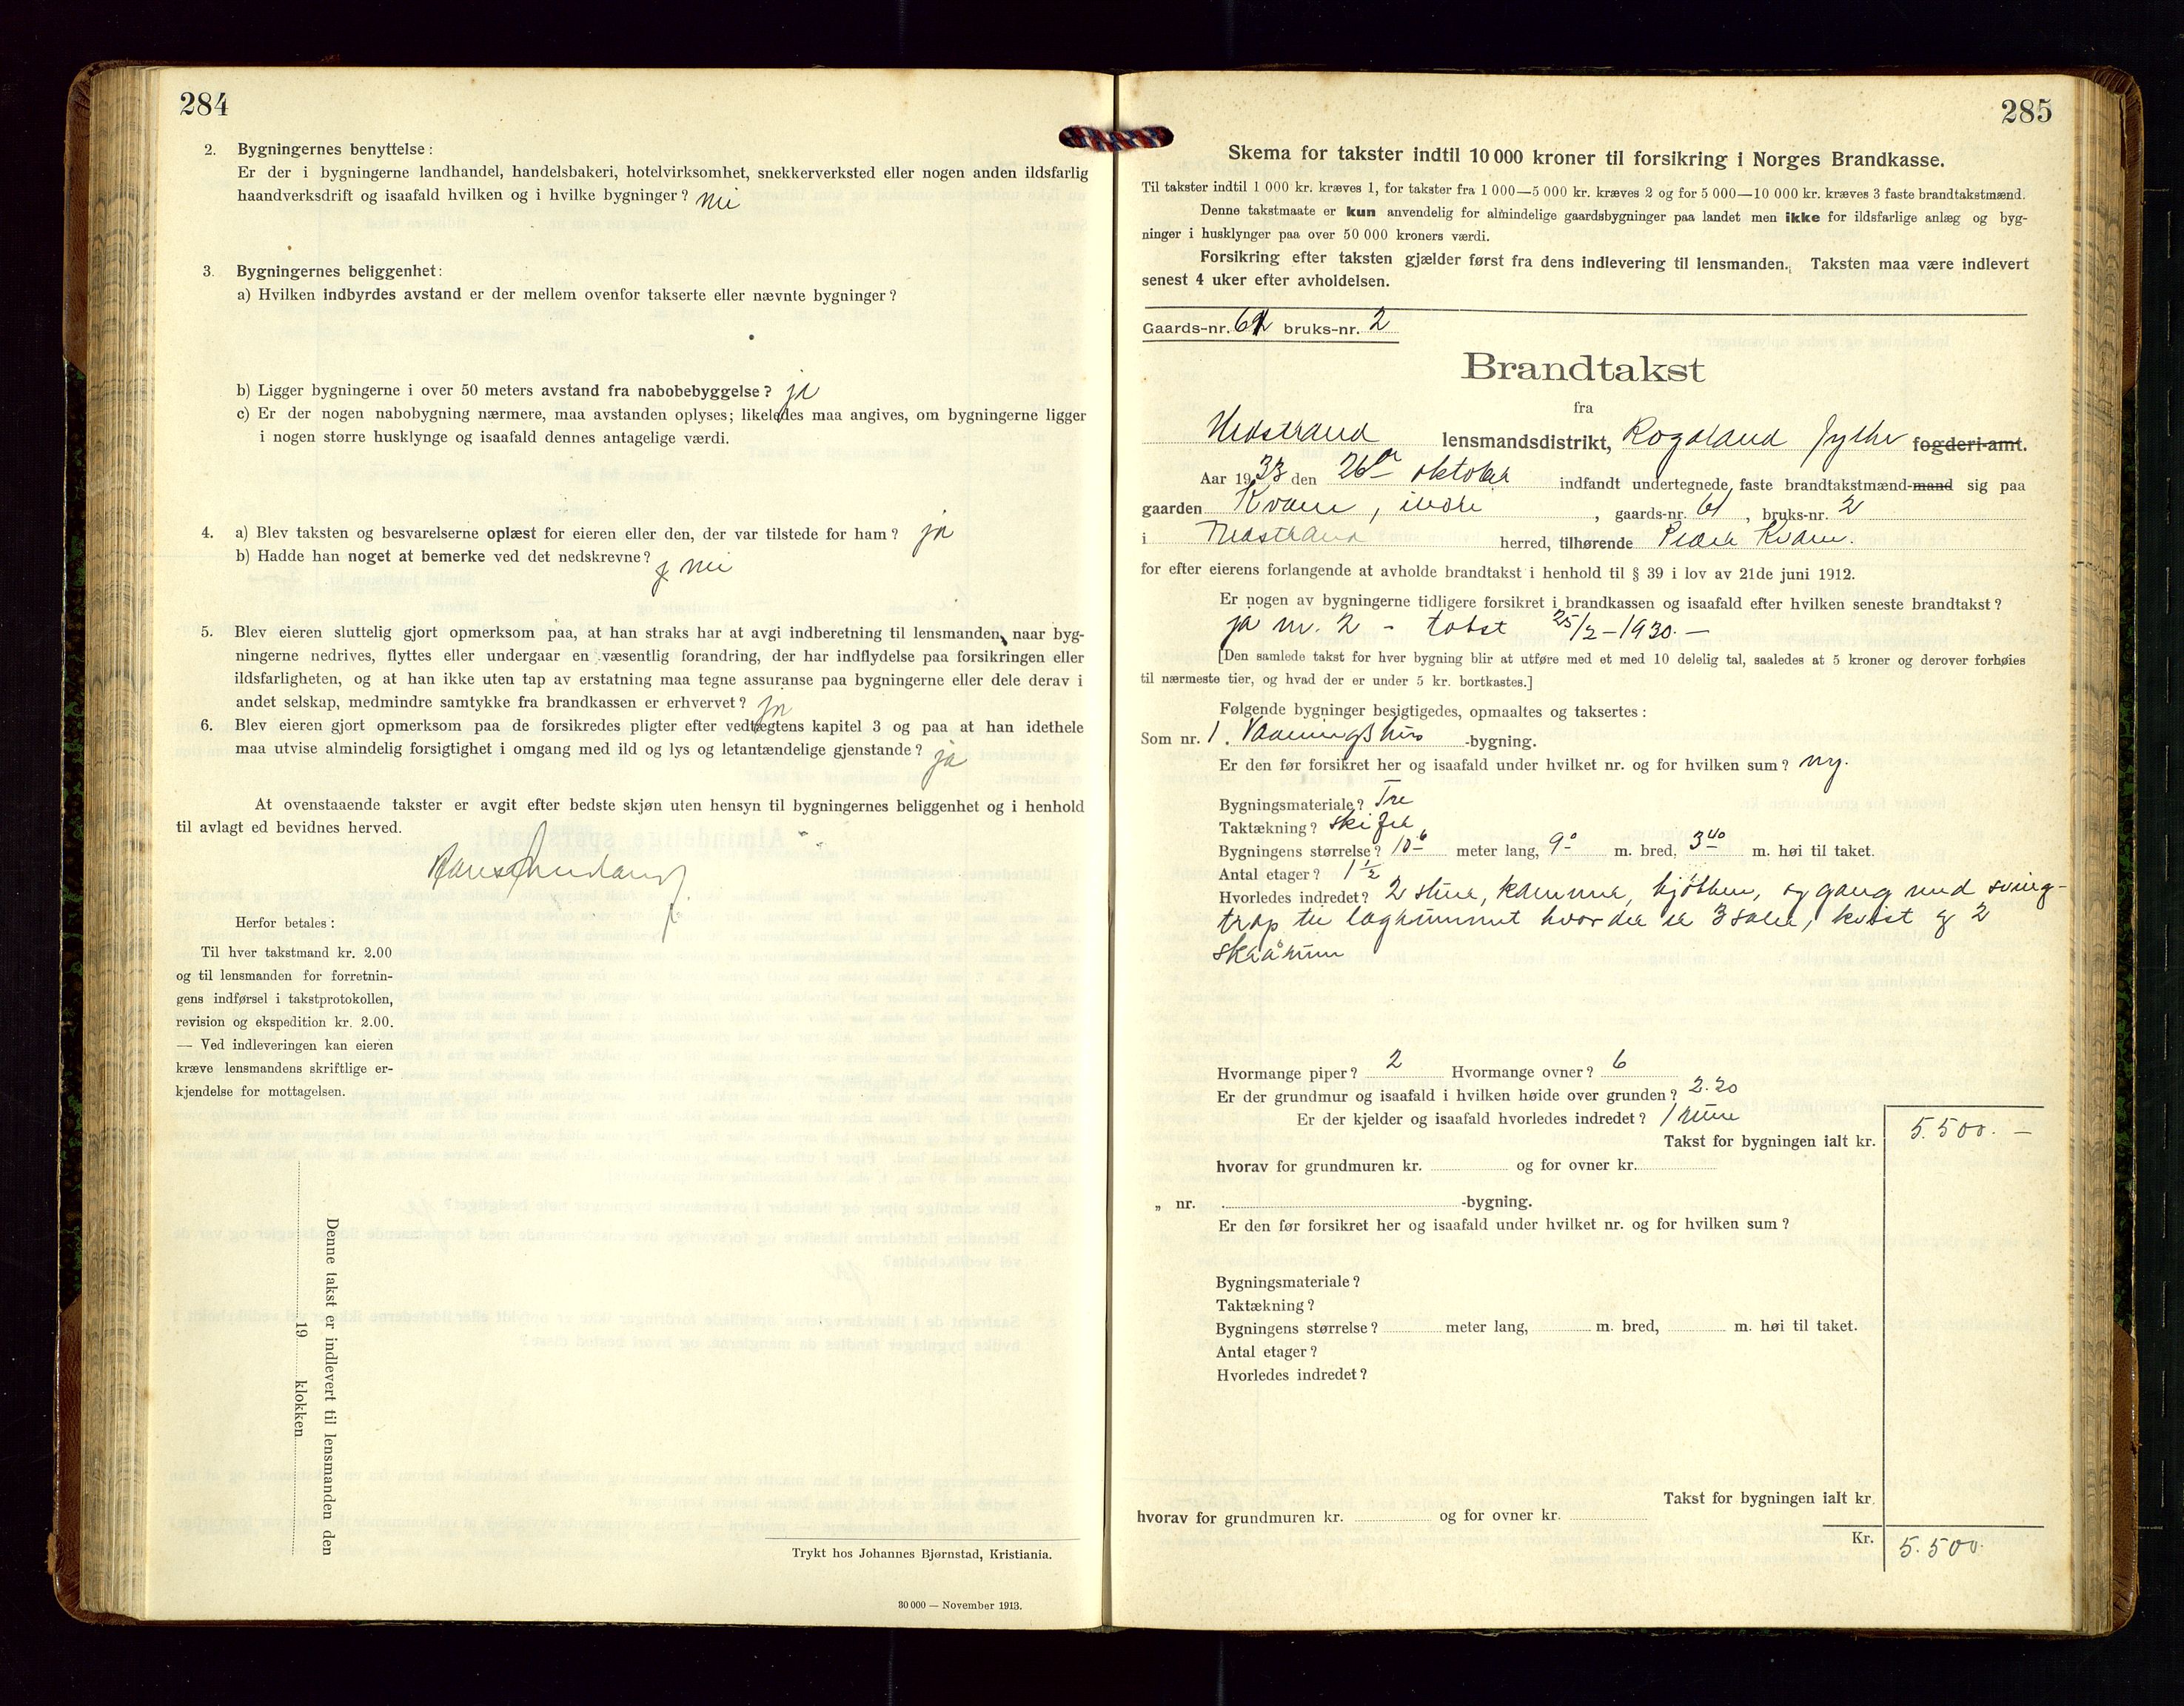 284
2. Bygningernes benyttelse:
Er der i bygningerne landhandel, handelsbakeri, hotelvirksomhet, snekkerverksted eller nogen anden ildsfarlig
haandverksdrift og isaafald hvilken og i hvilke bygninger? nei
3. Bygningernes beliggenhet:
a) Hvilken indbyrdes avstand er der mellem ovenfor takserte eller nævnte bygninger?
b) Ligger bygningerne i over 50 meters avstand fra nabobebyggelse? ja
c) Er der nogen nabobygning nærmere, maa avstanden oplyses; likeledes maa angives, om bygningerne ligger
i nogen større husklynge og isaafald dennes antagelige værdi.
4. a) Blev taksten og besvarelserne oplæst for eieren eller den, der var tilstede for ham? ja
b) Hadde han noget at bemerke ved det nedskrevne? nei
5. Blev eieren sluttelig gjort opmerksom paa, at han straks har at avgi indberetning til lensmanden, naar byg-
ningerne nedrives, flyttes eller undergaar en væsentlig forandring, der har indflydelse paa forsikringen eller
ildsfarligheten, og at han ikke uten tap av erstatning maa tegne assuranse paa bygningerne eller dele derav i
andet selskap, medmindre samtykke fra brandkassen er erhvervet? ja
6. Blev eieren gjort opmerksom paa de forsikredes pligter efter vedtægtens kapitel 3 og paa at han idethele
maa utvise almindelig forsigtighet i omgang med ild og lys og letantændelige gjenstande? ja
At ovenstaaende takster er avgit efter bedste skjøn uten hensyn til bygningernes beliggenhet og i henhold
til avlagt ed bevidnes herved.
Herfor betales:
Til hver takstmand kr. 2.00
og til lensmanden for forretnin-
gens indførsel i takstprotokollen,
revision og ekspedition kr. 2.00.
— Ved indleveringen kan eieren
kræve lensmandens skriftlige er-
kjendelse for mottagelsen.
Denne takst er indlevert til lensmanden den
19 klokken
Trykt hos Johannes Bjørnstad, Kristiania.
30 000 — November 1913.
285
Skema for takster indtil 10 000 kroner til forsikring i Norges Brandkasse.
Til takster indtil 1 000 kr. kræves 1, for takster fra 1 000—5 000 kr. kræves 2 og for 5 000—10 000 kr. kræves 3 faste brandtakstmænd.
Denne takstmaate er kun anvendelig for almindelige gaardsbygninger paa landet men ikke for ildsfarlige anlæg og byg-
ninger i husklynger paa over 50 000 kroners værdi.
Forsikring efter taksten gjælder først fra dens indlevering til lensmanden. Taksten maa være indlevert
senest 4 uker efter avholdelsen.
Gaards-nr. 61 bruks-nr. 2
Brandtakst
fra
Nedstrand lensmandsdistrikt, Rogaland fylke fogderi-amt.
Aar 1933 den 26de oktober indfandt undertegnede faste brandtakstmænd-mand sig paa
gaarden Kvam, indre, gaards-nr. 61, bruks-nr. 2
i Nedstrand herred, tilhørende Peder Kvam.
for efter eierens forlangende at avholde brandtakst i henhold til § 39 i lov av 21de juni 1912.
Er nogen av bygningerne tidligere forsikret i brandkassen og isaafald efter hvilken seneste brandtakst?
ja nr. 2 - takst 25/2 - 1930. -
[Den samlede takst for hver bygning blir at utføre med et med 10 delelig tal, saaledes at 5 kroner og derover forhøies
til nærmeste tier, og hvad der er under 5 kr. bortkastes.]
Følgende bygninger besigtigedes, opmaaltes og taksertes:
Som nr. 1. Vaaningshus -bygning.
Er den før forsikret her og isaafald under hvilket nr. og for hvilken sum? ny.
Bygningsmateriale? Tre
Taktækning? skifer
Bygningens størrelse? 10 6 meter lang, 9 0 m. bred, 3 40 m. høi til taket.
Antal etager? 1 1/2
Hvorledes indredet? 2 stuer, kammer, kjøkken, og gang med sving-
trap til loghummet hvor der er 3 saler, kvist og 2
skraarum
Hvormange piper? 2 Hvormange ovner? 6
Er der grundmur og isaafald i hvilken høide over grunden? 2.20
Er der kjelder og isaafald hvorledes indredet? 1 rum
Takst for bygningen ialt kr. 5.500. -
hvorav for grundmuren kr. og for ovner kr.
„ nr. -bygning.
Er den før forsikret her og isaafald under hvilket nr. og for hvilken sum?
Bygningsmateriale?
Taktækning?
Bygningens størrelse? meter lang, m. bred, m. høi til taket.
Antal etager?
Hvorledes indredet?
Takst for bygningen ialt kr.
hvorav for grundmuren kr. og for ovner kr.
Kr. 5.500.